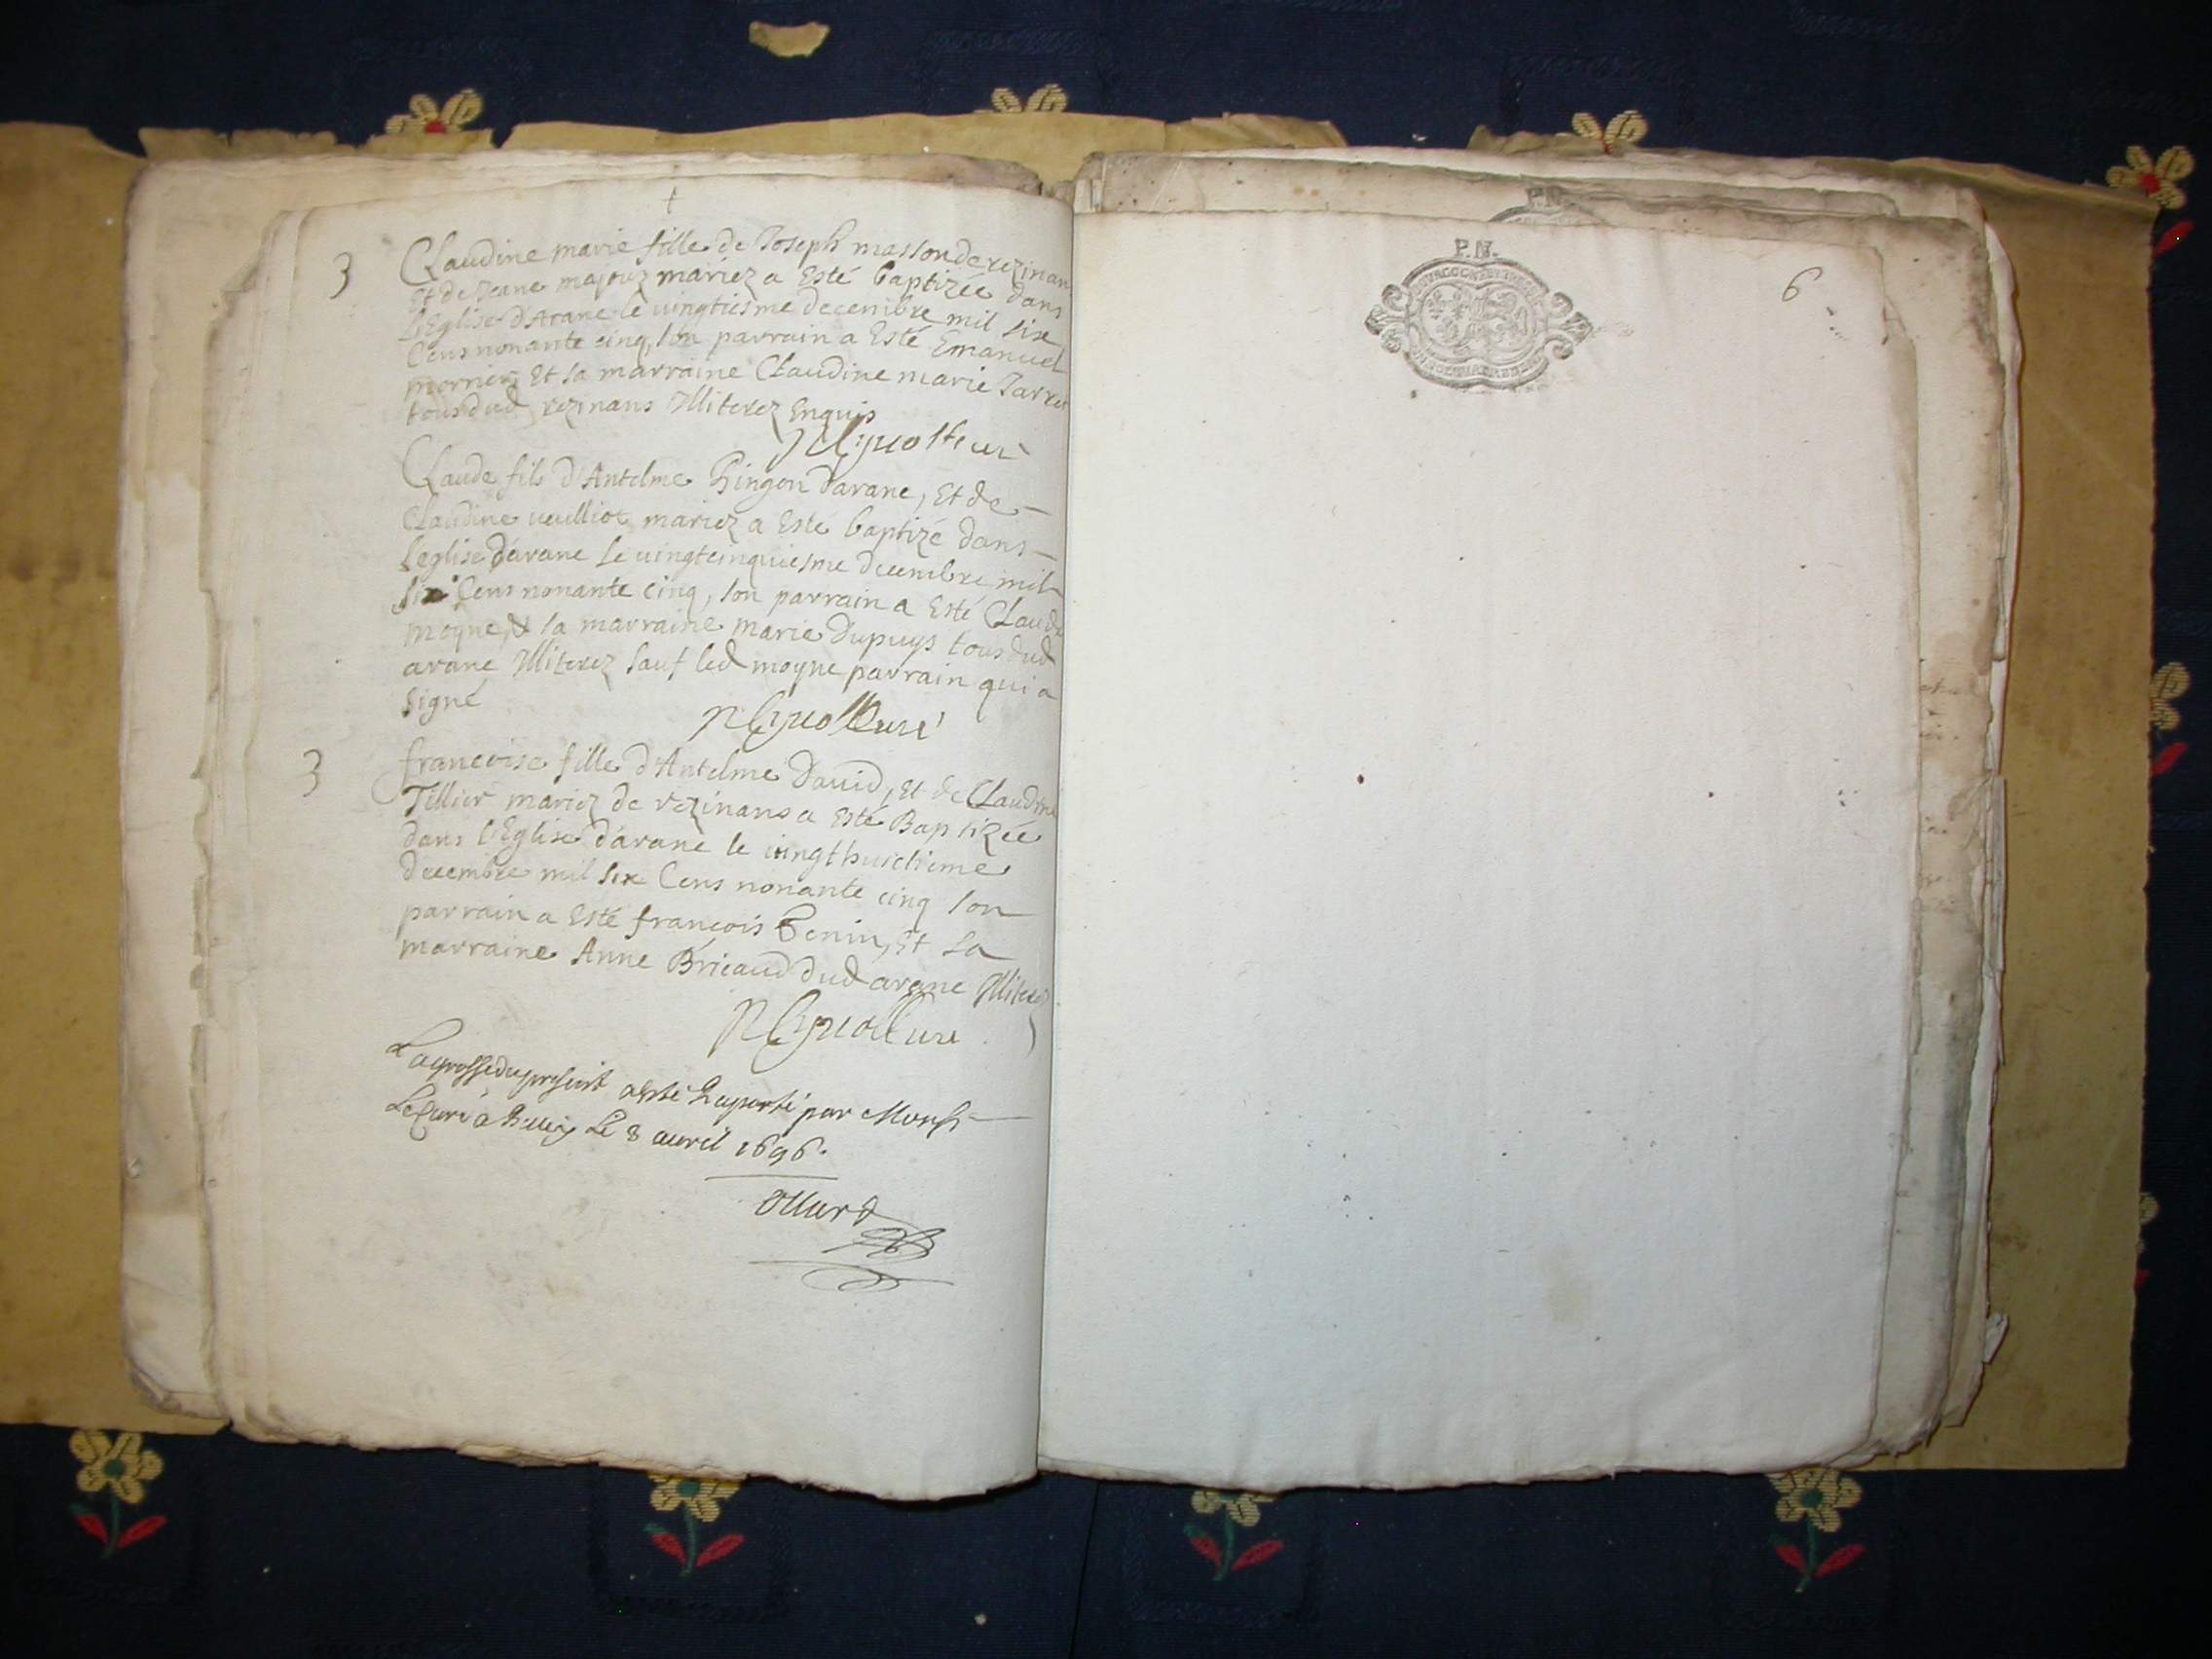 3
Claudine marie fille de Joseph masson de rezinan
Et de Jeane majouz mariez a Esté baptizée dans
l'Eglise d'Arane le vingtiesme decembre mil six
Cens nonante cinq, son parrain a Esté Emanuel
mornier Et sa marraine Claudine marie Jarre
tous dud rezinans Illiterez Enquis
Claude fils d'Antelme Pingon d'arane, Et de
Claudine veulliot mariez a Esté baptizé dans
l'eglise d'arane le vingtcinquiesme decembre mil
six Cens nonante cinq, son parrain a Esté Claude
moyne, & sa marraine marie Dupuys tous dud
arane Illiterez sauf led moyne parrain qui a
signé
3
francoise fille d'Antelme David, Et de Claudine
Tillier mariez de rezinans a Esté Baptizée
dans l'Eglise d'arane le vingthuictieme
decembre mil six Cens nonante cinq son
parrain a Esté françois Benin, Et sa
marraine Anne Bricaud dud arane Illiterez
La grosse du present a esté Raporté par Monsr
Le Curé a Belley Le 8 avril 1696.
P.N.
6